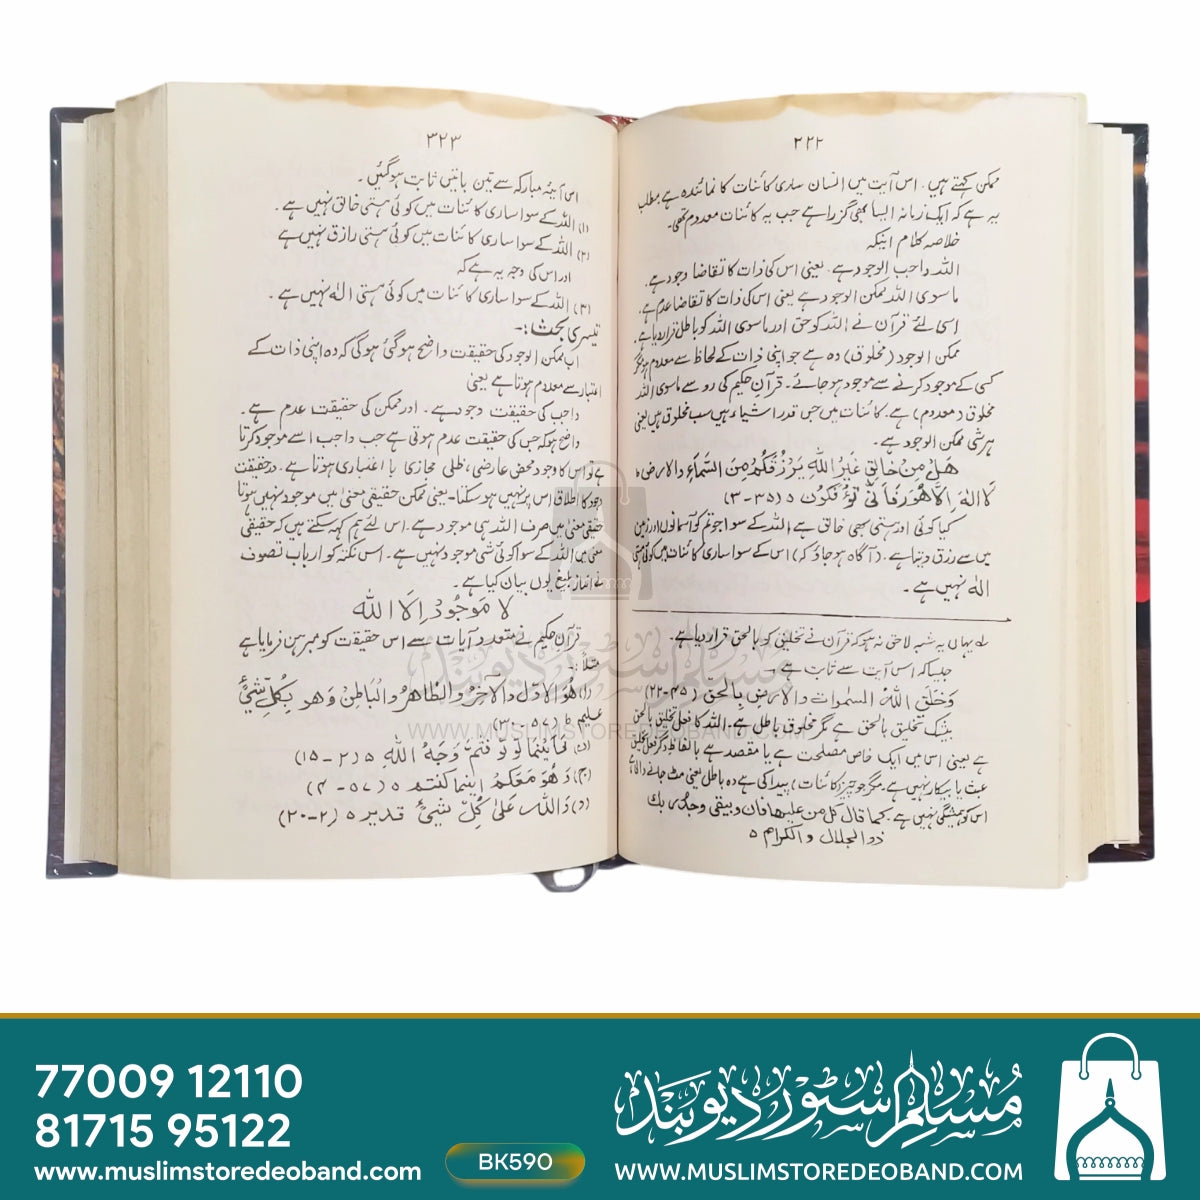 ۲۲۲
ممکن کہتے ہیں۔ اس آیت میں انسان ساری کائنات کا نمائندہ ہے مطلب
یہ ہے کہ ایک زمانہ ایسا بھی گزرا ہے جب یہ کائنات معدوم تھی۔
خلاصہ کلام اینکہ
اللہ واجب الوجود ہے۔ یعنی اس کی ذات کا تقاضا وجود ہے۔
ماسوی اللہ ممکن الوجود ہے یعنی اس کی ذات کا تقاضا عدم ہے۔
اسی لئے قرآن نے اللہ کو حق اور ماسوی اللہ کو باطل قرار دیا ہے۔
ممکن الوجود (مخلوق) وہ ہے جو اپنی ذات کے لحاظ سے معدوم ہو مگر
کسی کے موجود کرنے سے موجود ہو جائے۔ قرآن حکیم کی رو سے ماسوی اللہ
مخلوق (معدوم) ہے۔ کائنات میں جس قدر اشیاء ہیں سب مخلوق ہیں یعنی
ہر شی ممکن الوجود ہے۔
هَلْ مِنْ خَالِقٍ غَيْرُ اللّٰهِ يَرْزُقُكُمْ مِنَ السَّمَاءِ والارض ؕ
لَا اِلٰهَ اِلَّا هُوَ فَاَنّٰى تُؤْفَكُوْن ۵ (۳۵-۳)
کیا کوئی اور ہستی بھی خالق ہے اللہ کے سوا جو تم کو آسمانوں اور زمین
میں سے رزق دیتا ہے۔ (آگاہ ہو جاؤ کہ) اس کے سوا ساری کائنات میں کوئی ہستی
الٰہ نہیں ہے۔
لہ یہاں یہ شبہ لاحق نہ ہو کہ قرآن نے تخلیق کو بالحق قرار دیا ہے۔
جیسا کہ اس آیت سے ثابت ہے۔
وَخَلَقَ اللّٰهُ السمٰوات والارض بالحق (۴۵-۲۲)
بیشک تخلیق بالحق ہے مگر مخلوق باطل ہے۔ اللہ کا فعل تخلیق بالحق
ہے یعنی اس میں ایک خاص مصلحت ہے یا مقصد ہے بالفاظ دگر فعل تخلیق
عبث یا بیکار نہیں ہے۔ مگر جو چیز (کائنات) پیدا کی ہے وہ باطل یعنی مٹ جانے والا ہے
اس کو ہمیشگی نہیں ہے۔ کما قال کل من علیها فان ویبقی وجه ربك
ذو الجلال والاکرام ۵
۳۲۳
اس آیۂ مبارکہ سے تین باتیں ثابت ہو گئیں۔
(۱) اللہ کے سوا ساری کائنات میں کوئی ہستی خالق نہیں ہے۔
(۲) اللہ کے سوا ساری کائنات میں کوئی ہستی رازق نہیں ہے
اور اس کی وجہ یہ ہے کہ
(۳) اللہ کے سوا ساری کائنات میں کوئی ہستی الٰہ نہیں ہے۔
تیسری بحث:۔
اب ممکن الوجود کی حقیقت واضح ہو گئی ہوگی کہ وہ اپنی ذات کے
اعتبار سے معدوم ہوتا ہے یعنی
واجب کی حقیقت وجود ہے۔ اور ممکن کی حقیقت عدم ہے۔
واضح ہو کہ جس کی حقیقت عدم ہوتی ہے جب واجب اسے موجود کرتا
ہے تو اس کا وجود محض عارضی، ظلی مجازی یا اعتباری ہوتا ہے۔ درحقیقت
وجود کا اطلاق اس پر نہیں ہو سکتا۔ یعنی ممکن حقیقی معنیٰ میں موجود نہیں ہوتا
حقیقی معنیٰ میں صرف اللہ ہی موجود ہے۔ اس لئے ہم کہہ سکتے ہیں کہ حقیقی
معنی میں اللہ کے سوا کوئی شی موجود نہیں ہے۔ اس نکتہ کو ارباب تصوف
نے انداز بلیغ یوں بیان کیا ہے۔
لا موجود الا اللہ
قرآن حکیم نے متعدد آیات سے اس حقیقت کو مبرہن فرمایا ہے
مثلا:۔
(ا) هُوَ الاَوّلُ والآخِرُ والظّاهِرُ والبَاطِنُ وَهو بِكُلِّ شَيْءٍ
عليم ط (۵۷-۳)
(ب) فَاَيْنَمَا تُوَلُّوْا فَثَمَّ وَجْهُ اللّٰهِ ۵ (۲-۱۱۵)
(ج) وَهُوَ مَعَكُمْ اَينما كنتم ۵ (۵۷-۴)
(د) وَاللّٰهُ عَلىٰ كُلِّ شَيْءٍ قدير ۵ (۲-۲۰)
WWW.MUSLIMSTOREDEOBAND.COM
مسلم سٹور دیوبند
77009 12110
81715 95122
www.muslimstoredeoband.com
BK590
مسلم سٹور دیوبند
WWW.MUSLIMSTOREDEOBAND.COM